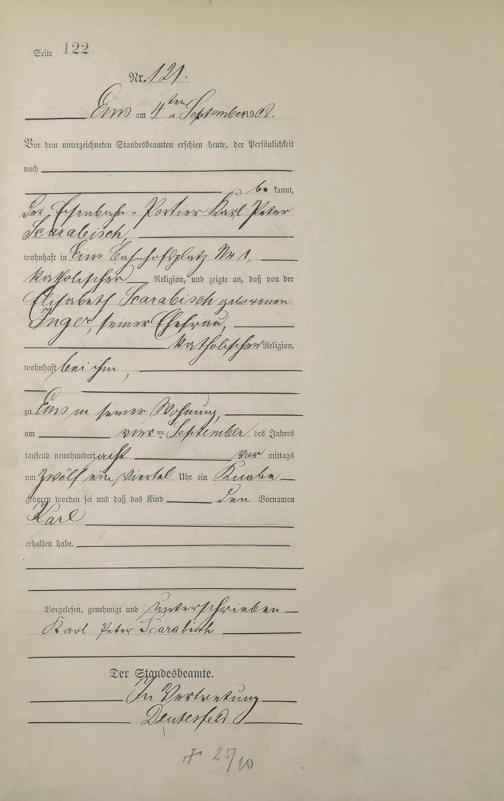 Seite 122
Nr. 121.
Ems am 4ten September 1908.
Vor dem unterzeichneten Standesbeamten erschien heute, der Persönlichkeit
nach
be kannt,
der Eisenbahn-Portier Karl Peter
Scarabisch,
wohnhaft in Ems Bahnhofsplatz Nr. 1,
katholischer Religion, und zeigte an, daß von der
Elisabeth Scarabisch geborenen
Inger, seiner Ehefrau,
katholischer Religion,
wohnhaft bei ihm,
zu Ems in seiner Wohnung,
am vierten September des Jahres
tausend neunhundert acht vor mittags
um zwölf ein Viertel Uhr ein Knabe
geboren worden sei und daß das Kind den Vornamen
Karl
erhalten habe.
Vorgelesen, genehmigt und unterschrieben
Karl Peter Scarabisch
Der Standesbeamte.
In Vertretung
25/10